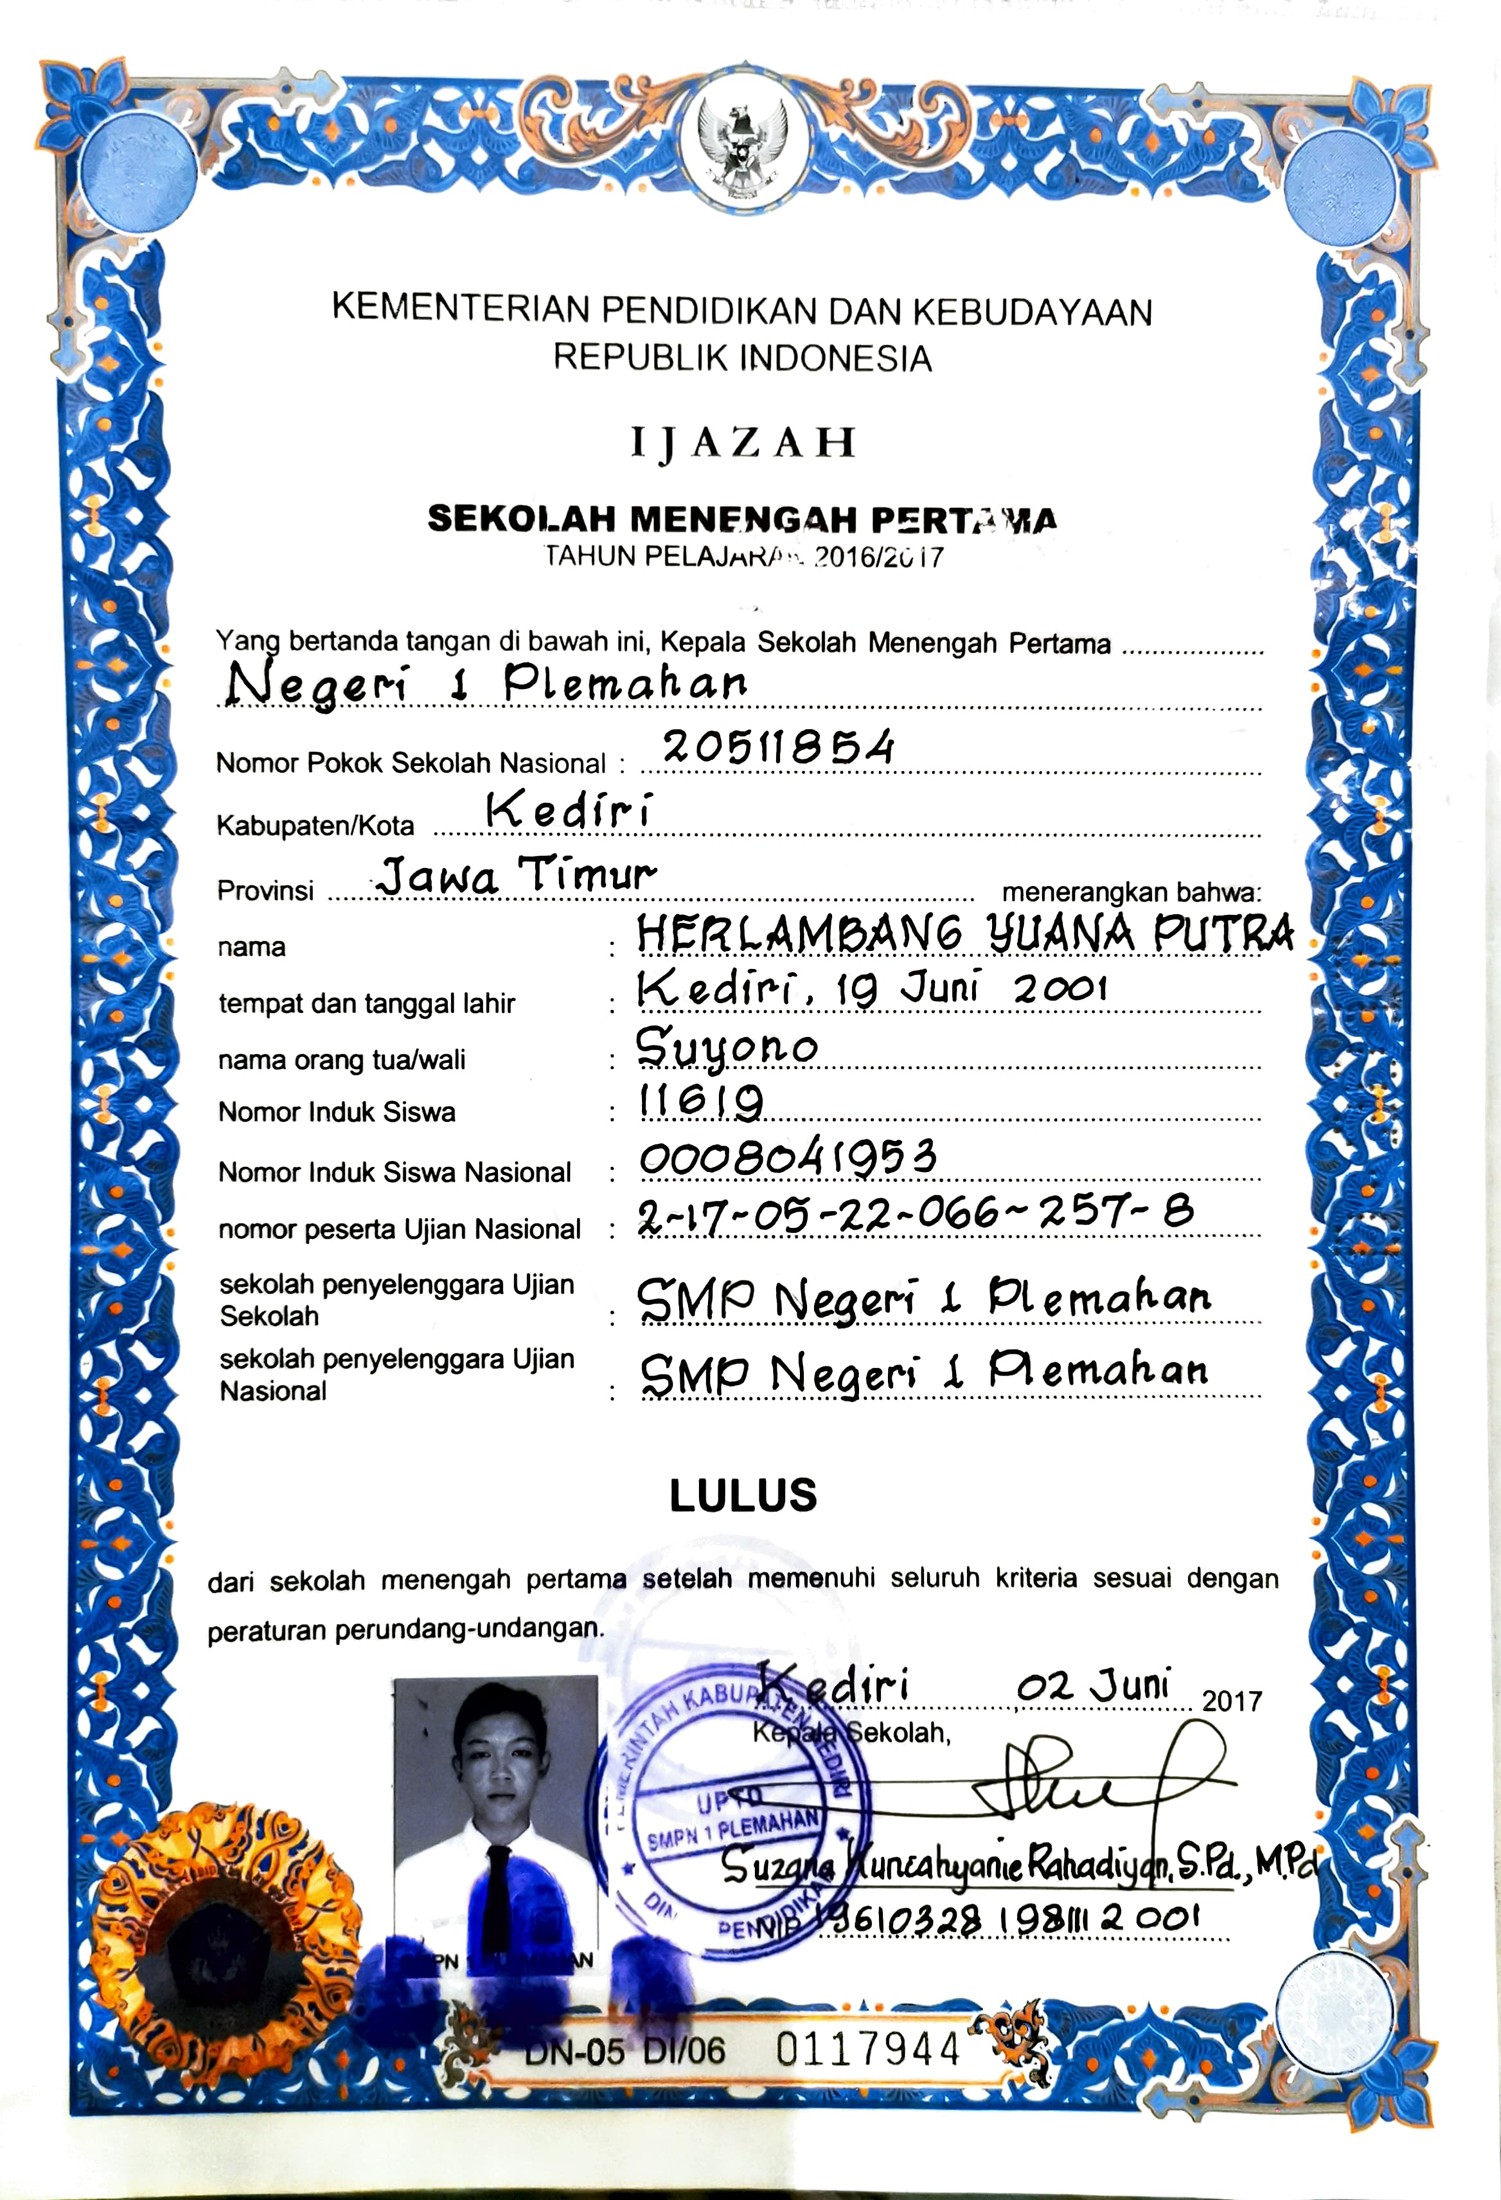 KEMENTERIAN PENDIDIKAN DAN KEBUDAYAAN
REPUBLIK INDONESIA
IJAZAH
SEKOLAH MENENGAH PERTAMA
TAHUN PELAJARAN 2016/2017
Yang bertanda tangan di bawah ini, Kepala Sekolah Menengah Pertama ..................
Negeri 1 Plemahan
Nomor Pokok Sekolah Nasional : 20511854
Kabupaten/Kota Kediri
Provinsi Jawa Timur menerangkan bahwa:
nama : HERLAMBANG YUANA PUTRA
tempat dan tanggal lahir : Kediri, 19 Juni 2001
nama orang tua/wali : Suyono
Nomor Induk Siswa : 11619
Nomor Induk Siswa Nasional : 0008041953
nomor peserta Ujian Nasional : 2-17-05-22-066-257-8
sekolah penyelenggara Ujian
Sekolah : SMP Negeri 1 Plemahan
sekolah penyelenggara Ujian
Nasional : SMP Negeri 1 Plemahan
LULUS
dari sekolah menengah pertama setelah memenuhi seluruh kriteria sesuai dengan
peraturan perundang-undangan.
Kediri, 02 Juni 2017
Kepala Sekolah,
PEMERINTAH KABUPATEN KEDIRI
UPTD
SMPN 1 PLEMAHAN
PENDIDIKAN
Suzana Kuncahyanie Rahadiyan, S.Pd., M.Pd
NIP 19610328 198111 2 001
DN-05 DI/06 0117944